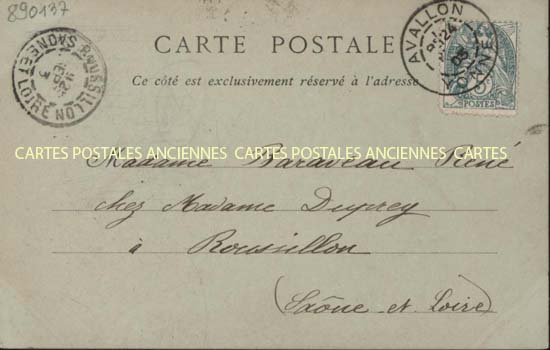 890137
CARTE POSTALE
Ce côté est exclusivement réservé à l'adresse
AVALLON
24
03
YONNE
POSTES
ROUSSILLON
SAONE ET LOIRE
CARTES POSTALES ANCIENNES CARTES POSTALES ANCIENNES CARTES
Madame René
chez Madame Duprey
à Roussillon
(Saône et Loire)